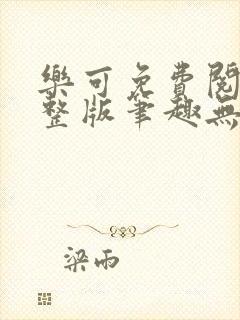 樂可免費閱
整版筆趣無
梁雨